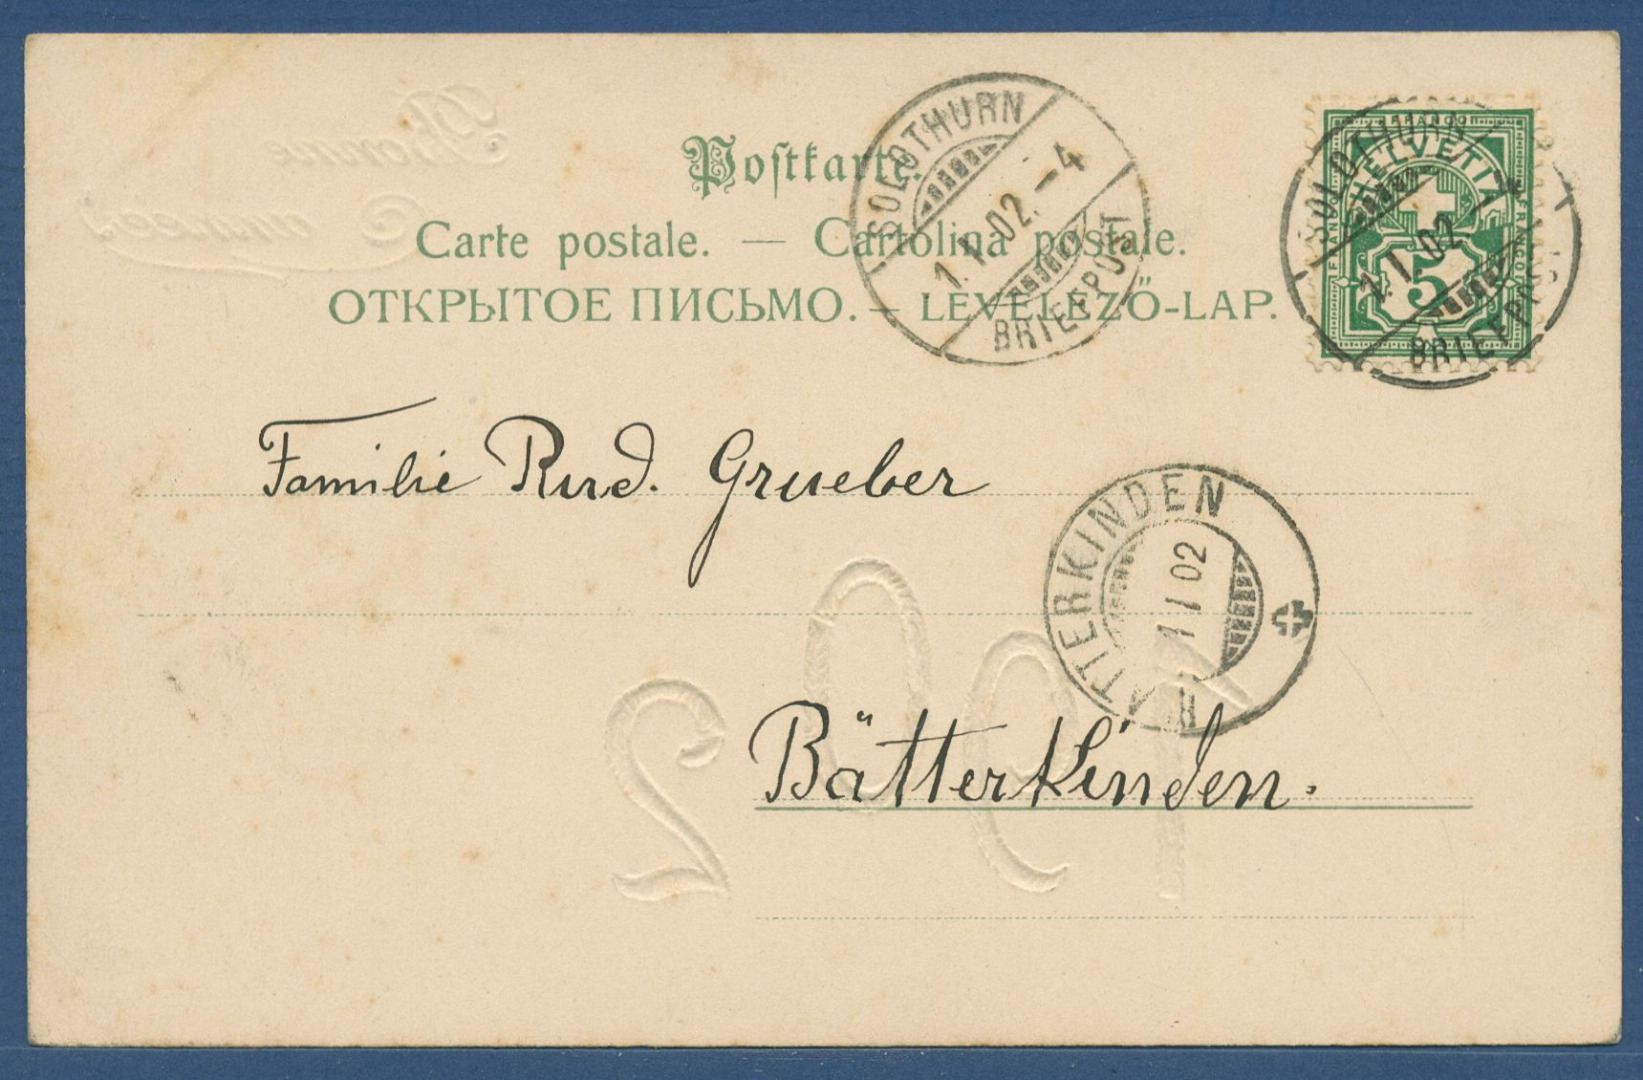 Postkarte.
Carte postale. — Cartolina postale.
ОТКРЫТОЕ ПИСЬМО. — LEVELEZŐ-LAP.
SOLOTHURN
1.I.02.-4
BRIEFPOST
FRANCO
HELVETIA
5
FRANCO
SOLOTHURN
1.I.02.-4
BRIEFPOST
Familie Rud. Grueber
BÄTTERKINDEN
1 I 02
Bätterkinden.
Bonne
Année
1902